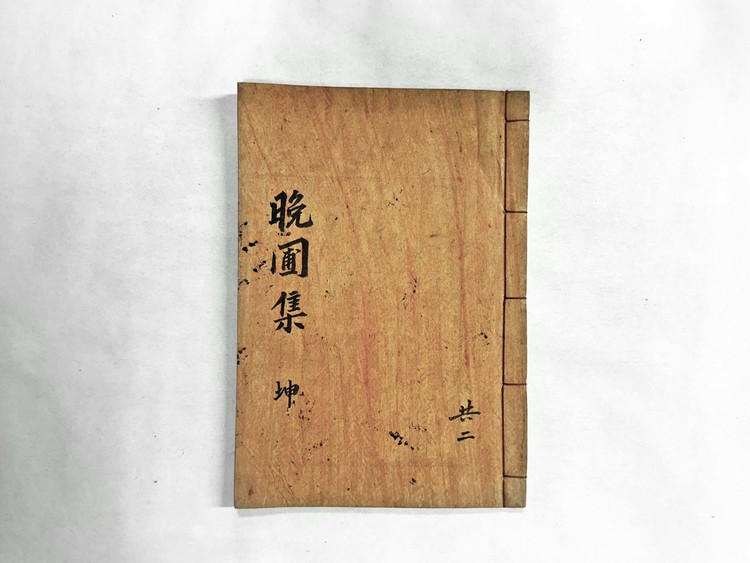 晩圃集 坤
共二